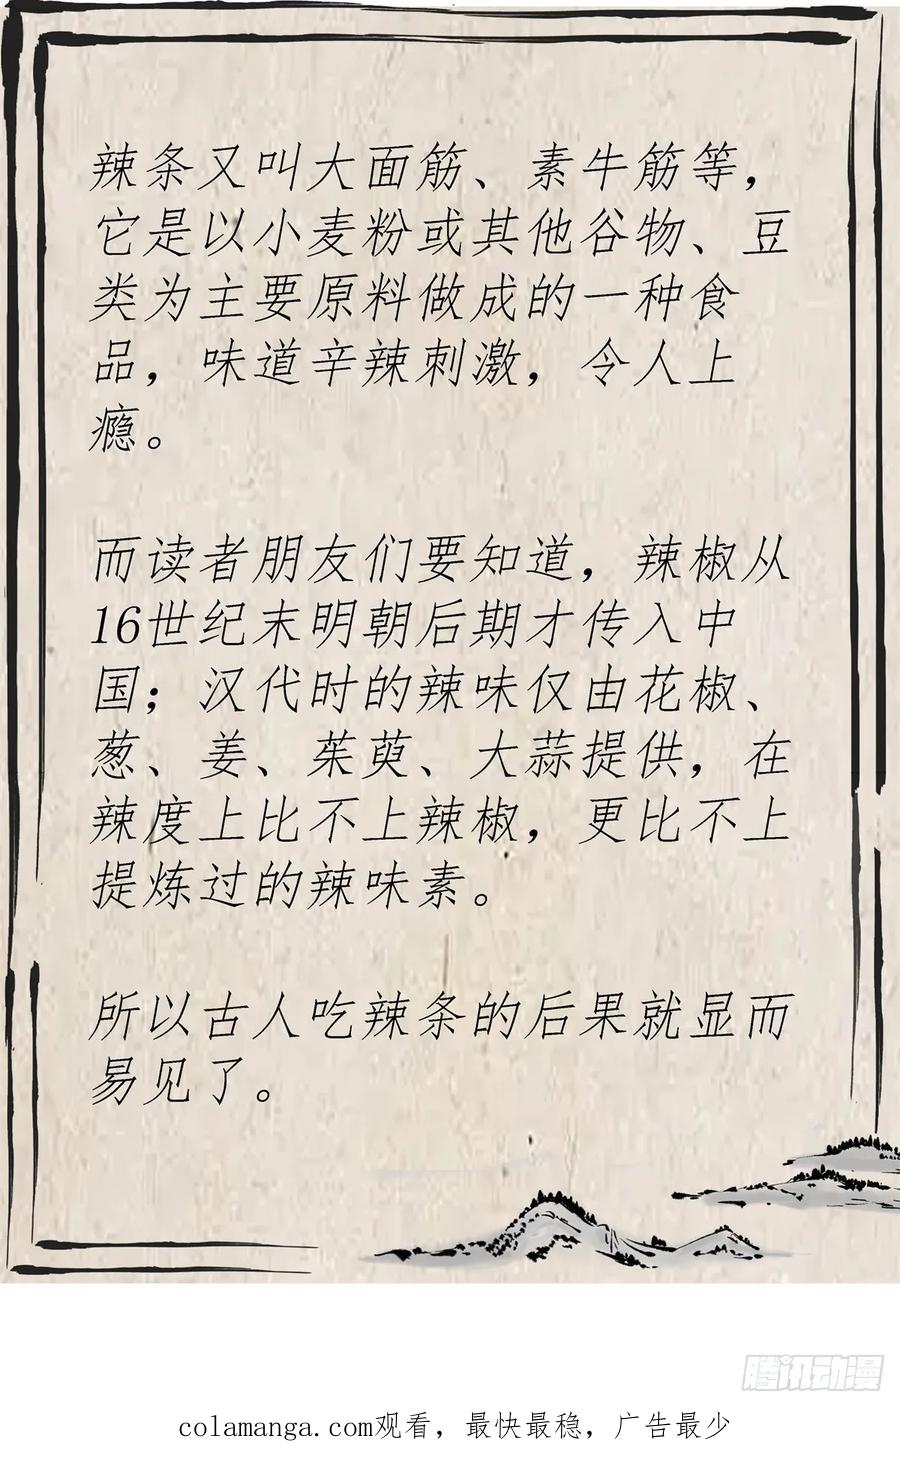 辣条又叫大面筋、素牛筋等，
它是以小麦粉或其他谷物、豆
类为主要原料做成的一种食
品，味道辛辣刺激，令人上
瘾。
而读者朋友们要知道，辣椒从
16世纪末明朝后期才传入中
国；汉代时的辣味仅由花椒、
葱、姜、茱萸、大蒜提供，在
辣度上比不上辣椒，更比不上
提炼过的辣味素。
所以古人吃辣条的后果就显而
易见了。
腾讯动漫
colamanga.com观看，最快最稳，广告最少